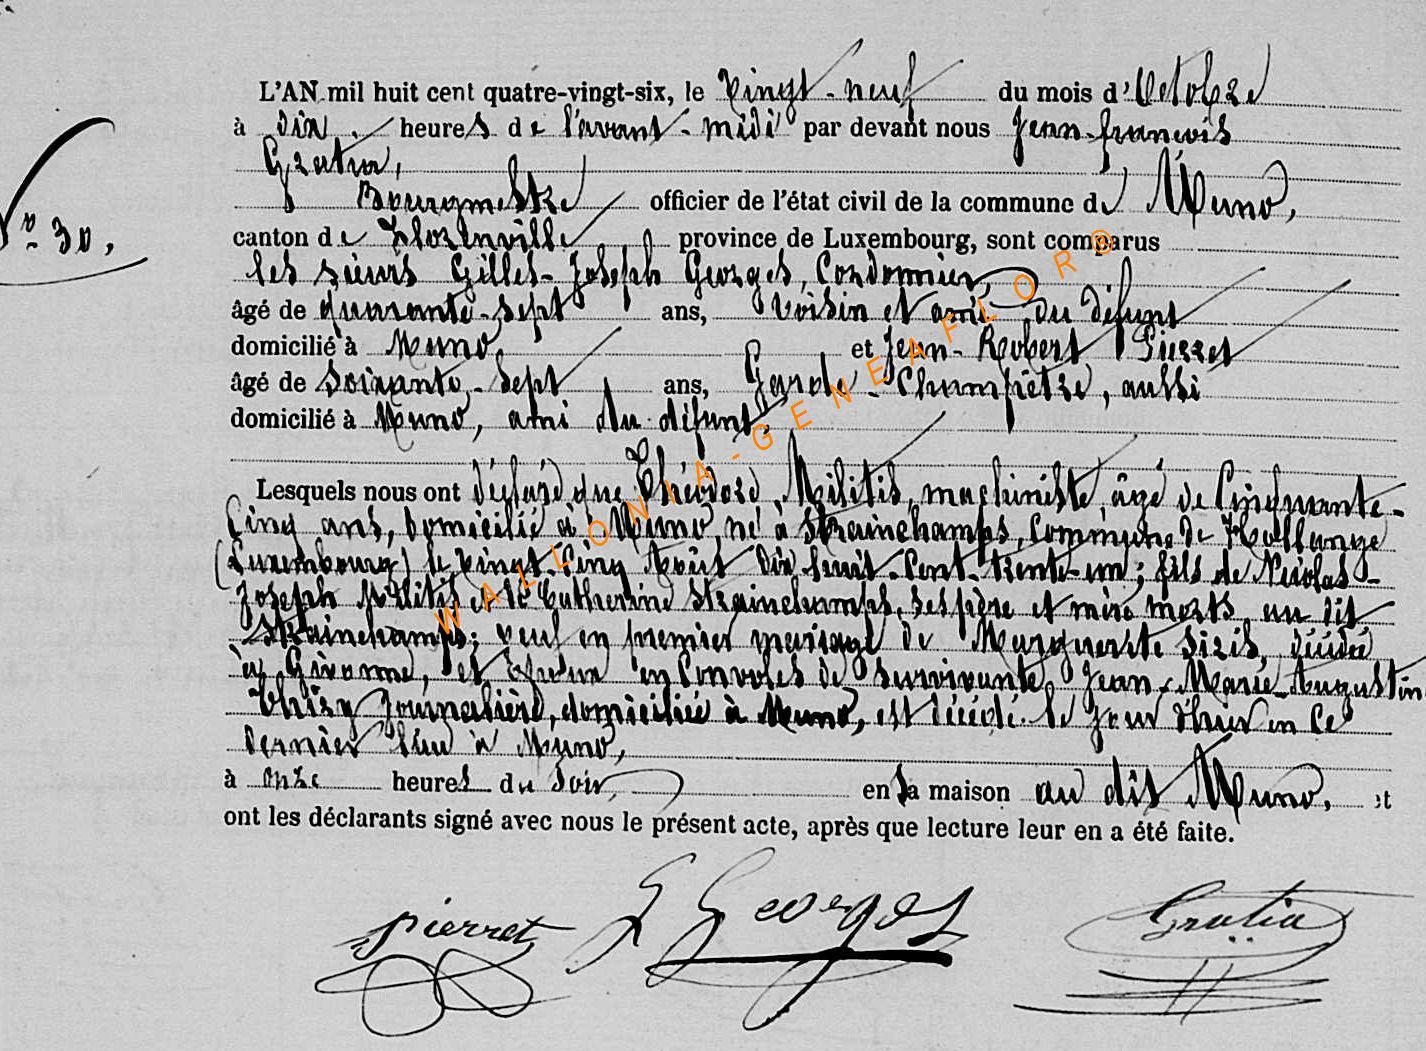 L'AN mil huit cent quatre-vingt-six, le Vingt-neuf du mois d'Octobre
à dix heures de l'avant-midi par devant nous Jean-françois
Gratia,
Bourgmestre officier de l'état civil de la commune de Muno,
N° 30,
canton de Florenville province de Luxembourg, sont comparus
les sieurs Gilles-Joseph Georges, Cordonnier,
âgé de quarante-sept ans, voisin et ami du défunt
domicilié à Muno et Jean-Robert Pierret
âgé de soixante-sept ans, Garde-Champêtre, aussi
domicilié à Muno, ami du défunt,
Lesquels nous ont déclaré que Théodore Militis, machiniste, âgé de Cinquante-
Cinq ans, domicilié à Muno, né à Strainchamps, Commune de Hollange
(Luxembourg) le vingt-Cinq Août dix huit-Cent-trente-un; fils de Nicolas-
Joseph Militis et de Catherine Strainchamps, ses père et mère morts au dit
Strainchamps; veuf en premier mariage de Marguerite, décédée
à Givonne, et époux en Convoles de survivante Jean-Marie-Augustin
Journalière, domiciliée à Muno, est décédé le jour d'hier en ce
dernier lieu à Muno,
à onze heures du soir, en sa maison au dit Muno, et
ont les déclarants signé avec nous le présent acte, après que lecture leur en a été faite.
pierret G Georges Gratia
WALLONIA-GENEAFLOR®